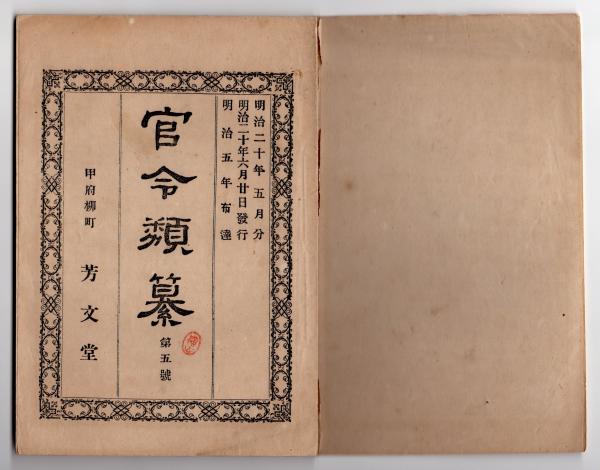 明治二十年五月分
明治二十年六月廿日發行
明治五年布達
官令類纂
第五號
甲府柳町
芳文堂